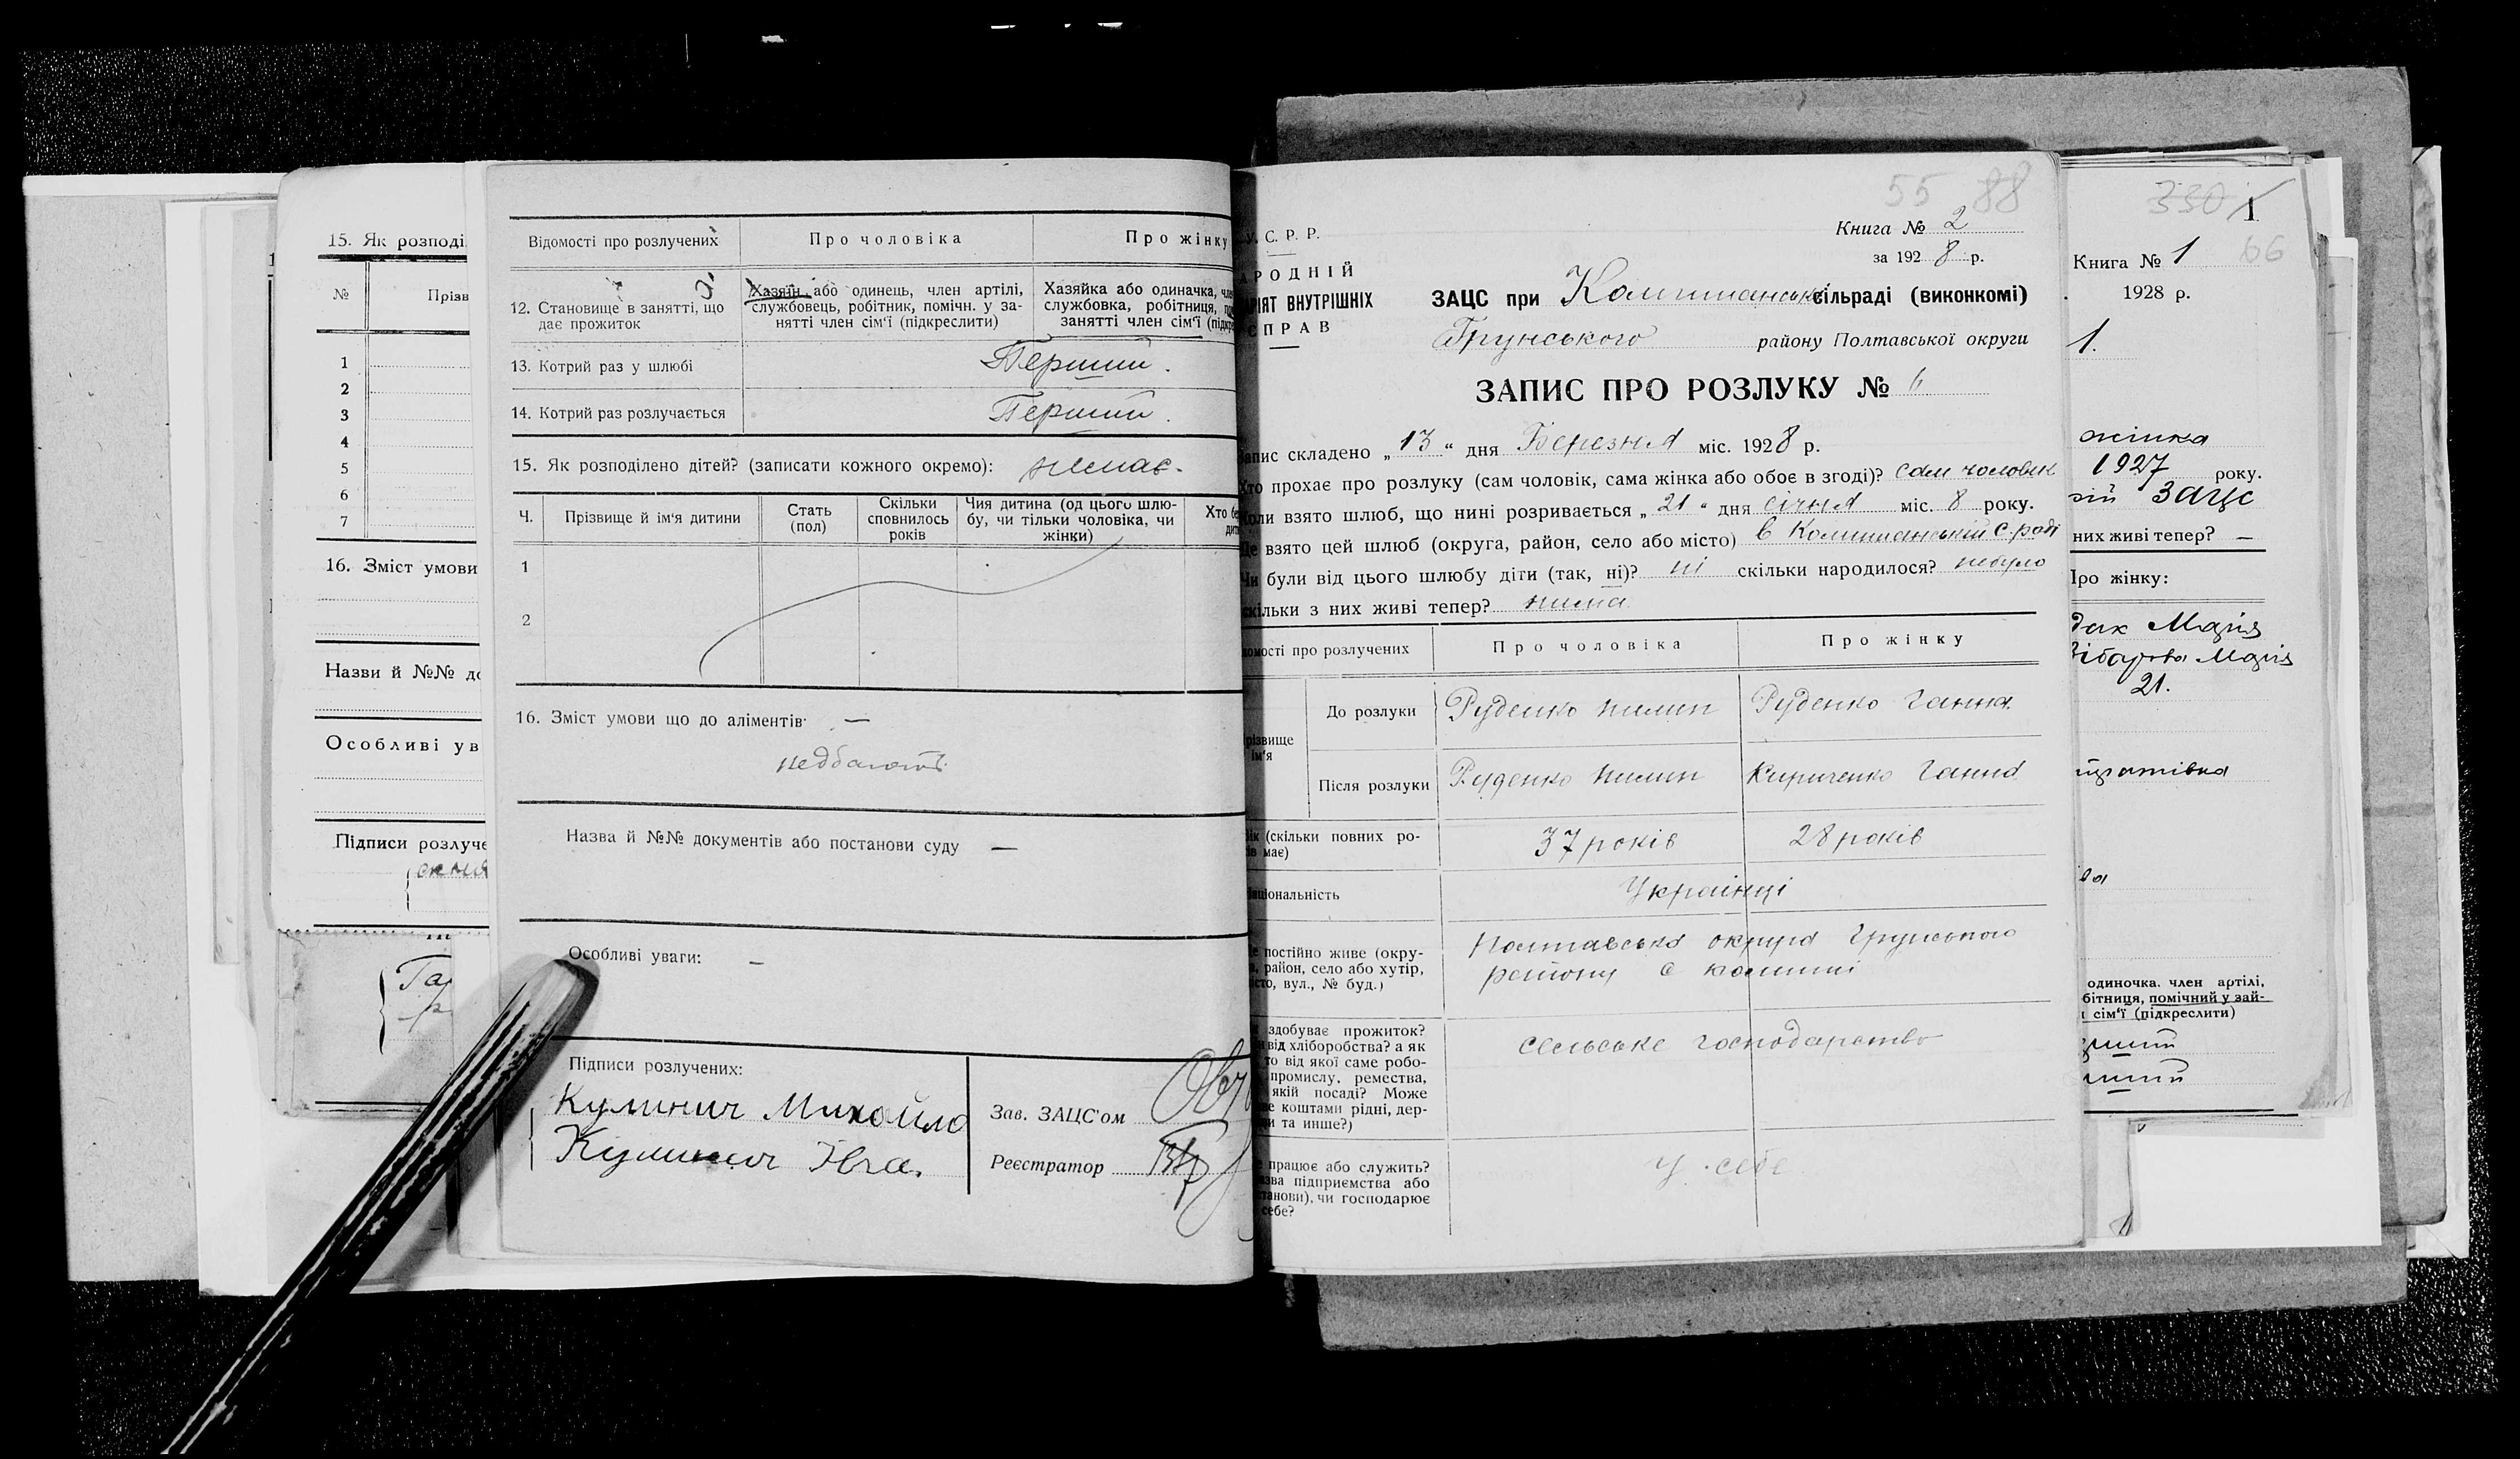 15. Як розподі
№ Прізв
1
2
3
4
5
6
7
16. Зміст умови
Назви й №№ до
Особливі ув
Підписи розлуче
Відомості про розлучених Про чоловіка Про жінку
12. Становище в занятті, що дає прожиток
Хазяїн або одинець, член артілі,
службовець, робітник, помічн. у за-
нятті член сім'ї (підкреслити)
Хазяйка або одиначка, чле
службовка, робітниця, по
занятті член сім'ї (підкре
13. Котрий раз у шлюбі Перший.
14. Котрий раз розлучається Перший.
15. Як розподілено дітей? (записати кожного окремо): немає.
Ч. Прізвище й ім'я дитини
Стать
(пол)
Скільки
сповнилось
років
Чия дитина (од цього шлю-
бу, чи тільки чоловіка, чи
жінки)
Хто бе
дит
1
2
16. Зміст умови що до аліментів —
Назва й №№ документів або постанови суду —
Особливі уваги: —
Підписи розлучених:
Кулинич Михайло
Зав. ЗАЦС'ом
Реєстратор
55 88
У. С. Р. Р.
Книга № 2
за 1928 р.
АРОДНІЙ
АРІЯТ ВНУТРІШНІХ
СПРАВ
ЗАЦС при сільраді (виконкомі)
Грунського району Полтавської округи
ЗАПИС ПРО РОЗЛУКУ № 6
апис складено „13“ дня Березня міс. 1928 р.
Хто прохає про розлуку (сам чоловік, сама жінка або обоє в згоді)? сам чоловік
Коли взято шлюб, що нині розривається „21“ дня січня міс. 8 року.
Де взято цей шлюб (округа, район, село або місто) в
Чи були від цього шлюбу діти (так, ні)? ні скільки народилося? небуло
скільки з них живі тепер? нима
домості про розлучених Про чоловіка Про жінку
різвище
ім'я
До розлуки Руденко Пилип Руденко Ганна
Після розлуки Руденко Пилип Кириченко Ганна
Вік (скільки повних ро-
ів має)
37 років 28 років
аціональність Українці
Де постійно живе (окру-
а, район, село або хутір,
істо, вул., № буд.)
Полтавська округа Грунського
району с
здобуває прожиток?
від хліборобства? а як
то від якої саме робо-
промислу, ремества,
якій посаді? Може
е коштами рідні, дер-
ви та инше?)
сельське господарство
е працює або служить?
азва підприємства або
танови), чи господарює
себе?
у себе
330 1
Книга № 1 66
1928 р.
1.
жінка
1927 року.
ЗАЦС
них живі тепер? —
Про жінку:
дак Марія
Марія
21.
одиночка, член артілі,
бітниця, помічний у зай-
і сім'ї (підкреслити)